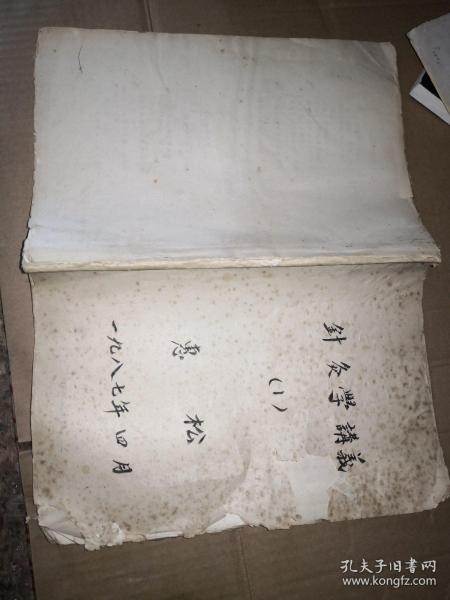 針灸學講義
（1）
惠松
一九八七年四月
孔夫子旧书网
www.kongfz.com